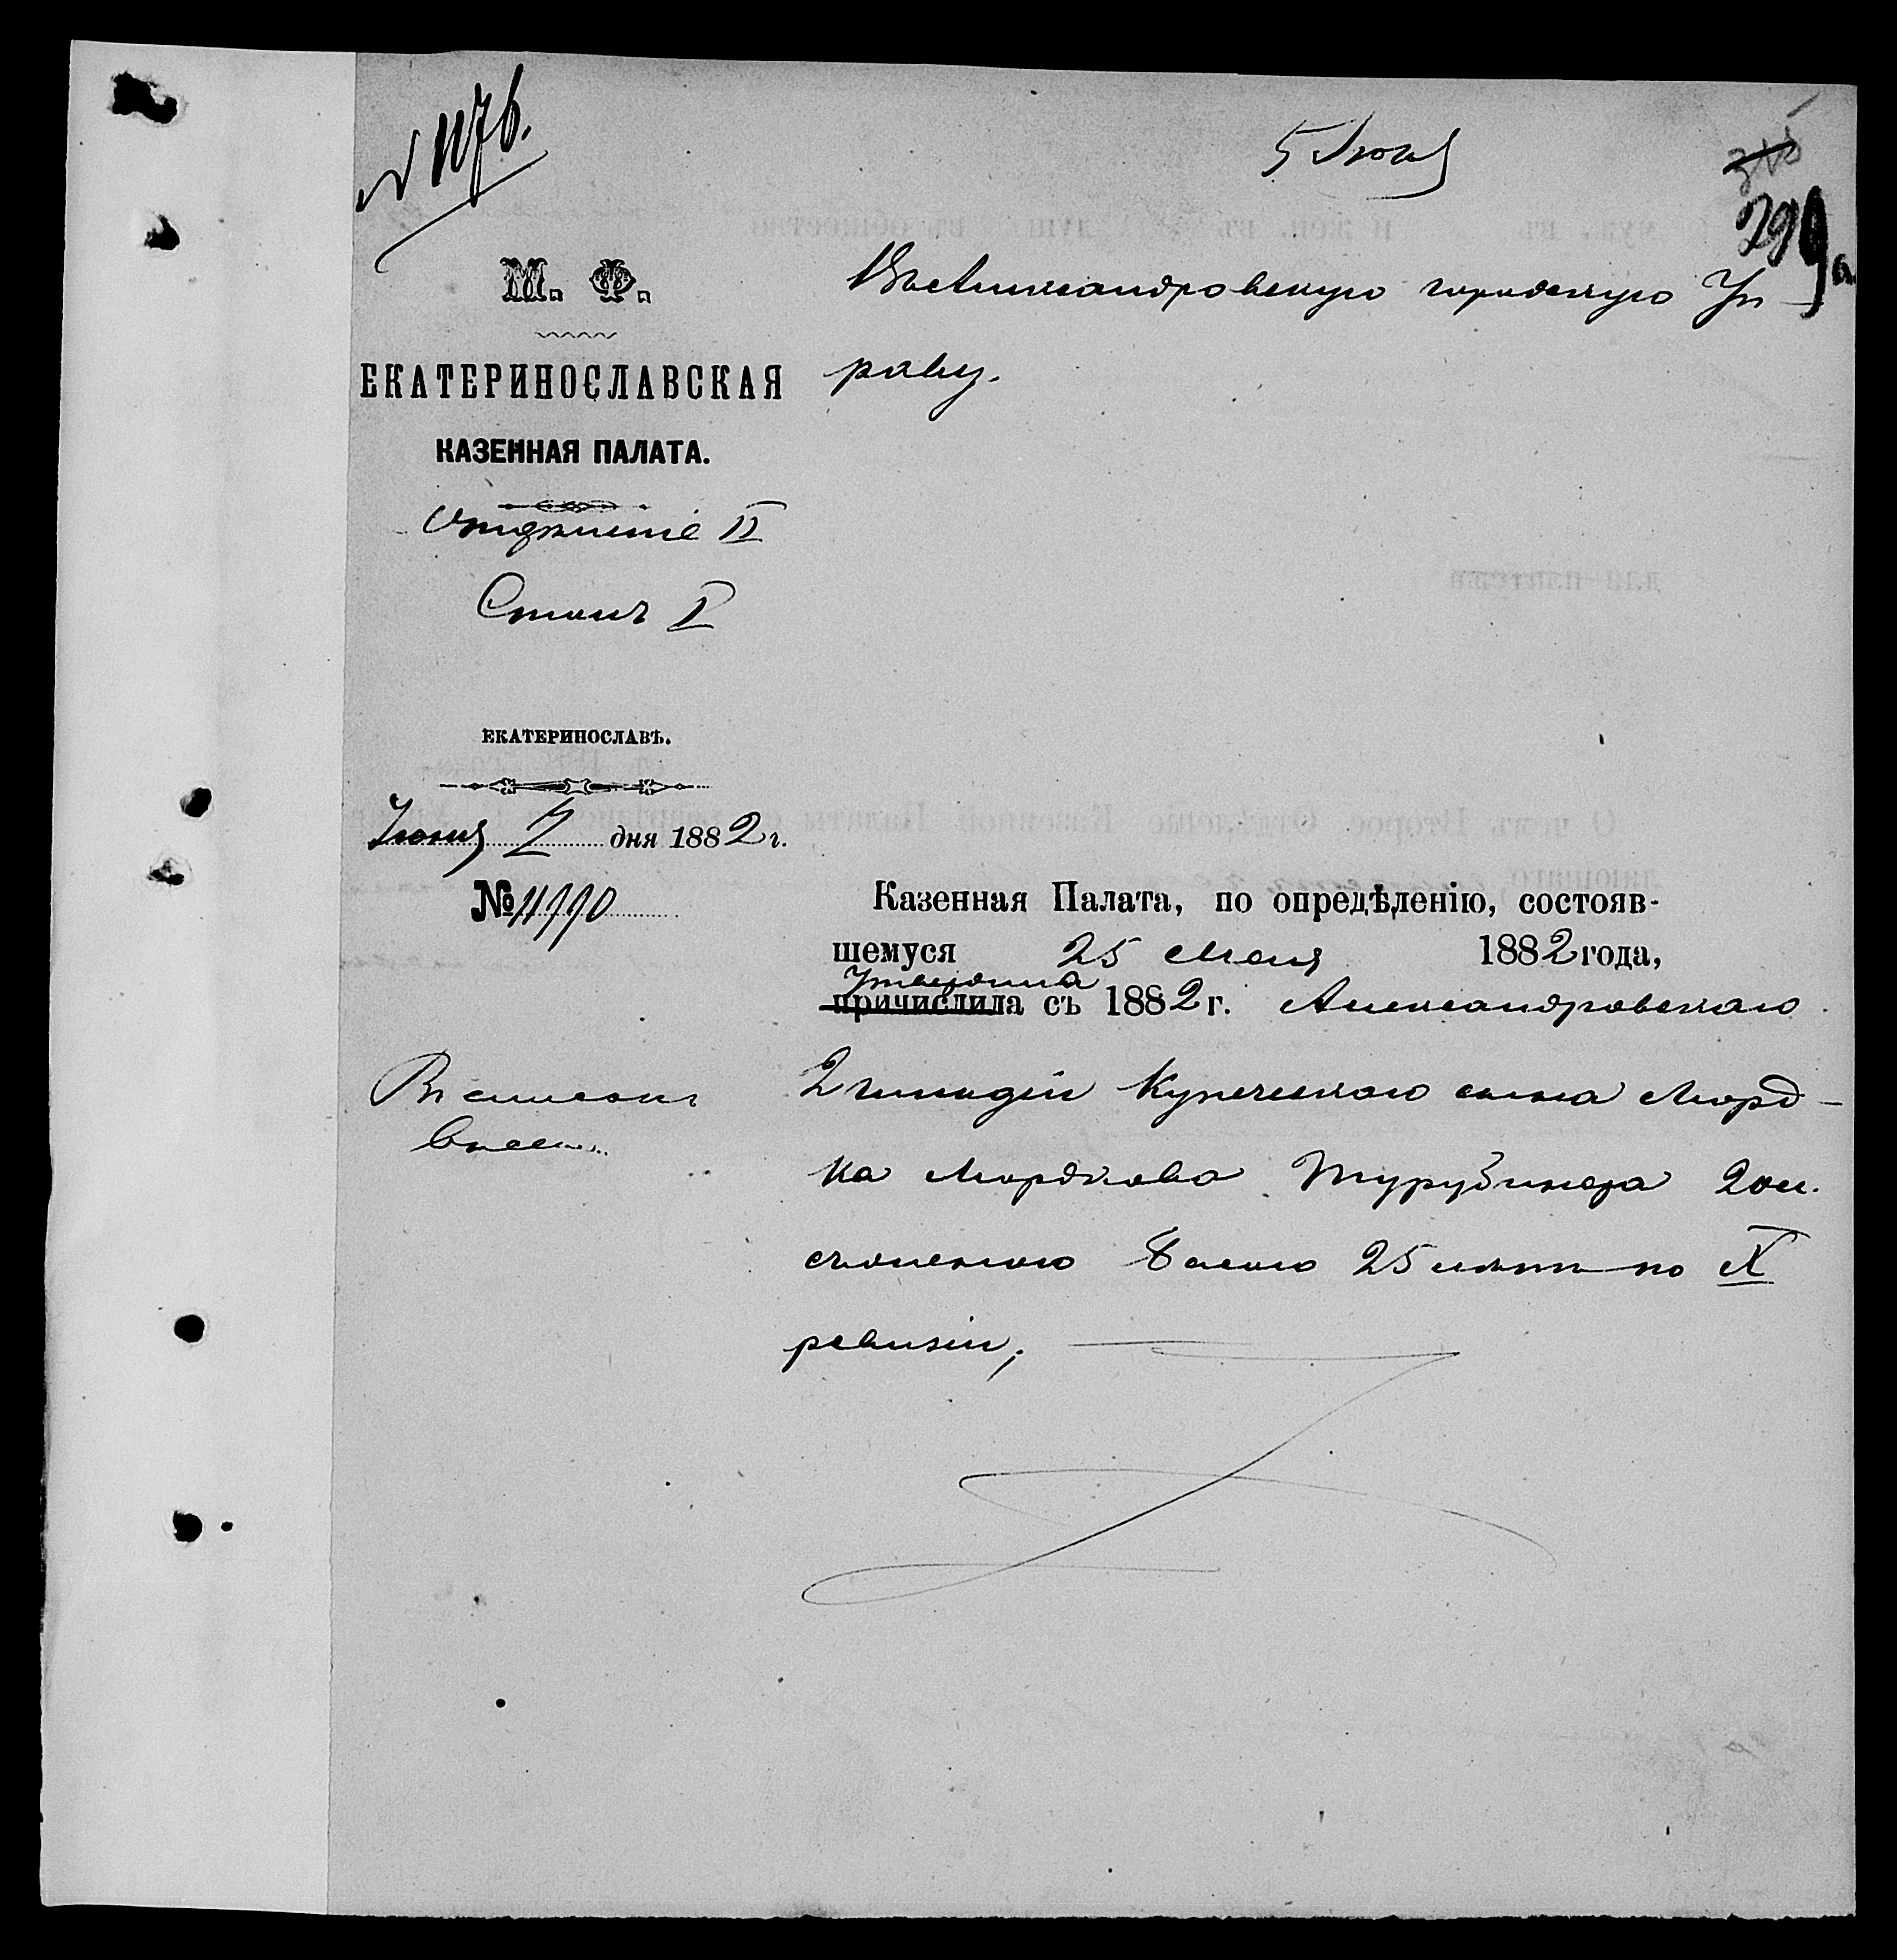 № 1176.
5 Июня
299а
М. Ф.
ЕКАТЕРИНОСЛАВСКАЯ
КАЗЕННАЯ ПАЛАТА.
Отдѣленіе II
Столъ I
ЕКАТЕРИНОСЛАВЪ.
Іюня 2 дня 1882 г.
№ 11990
Въ Александровскую городскую Уп-
раву.
Казенная Палата, по опредѣленію, состояв-
шемуся 25 Мая 1882 года,
Утвердила
причислила съ 1882 г. Александровскаго
2 гильдіи Купеческаго сына Морд-
ка Мордкова Турубинера
25 лѣтъ по X
ревизіи;
Въ списокъ